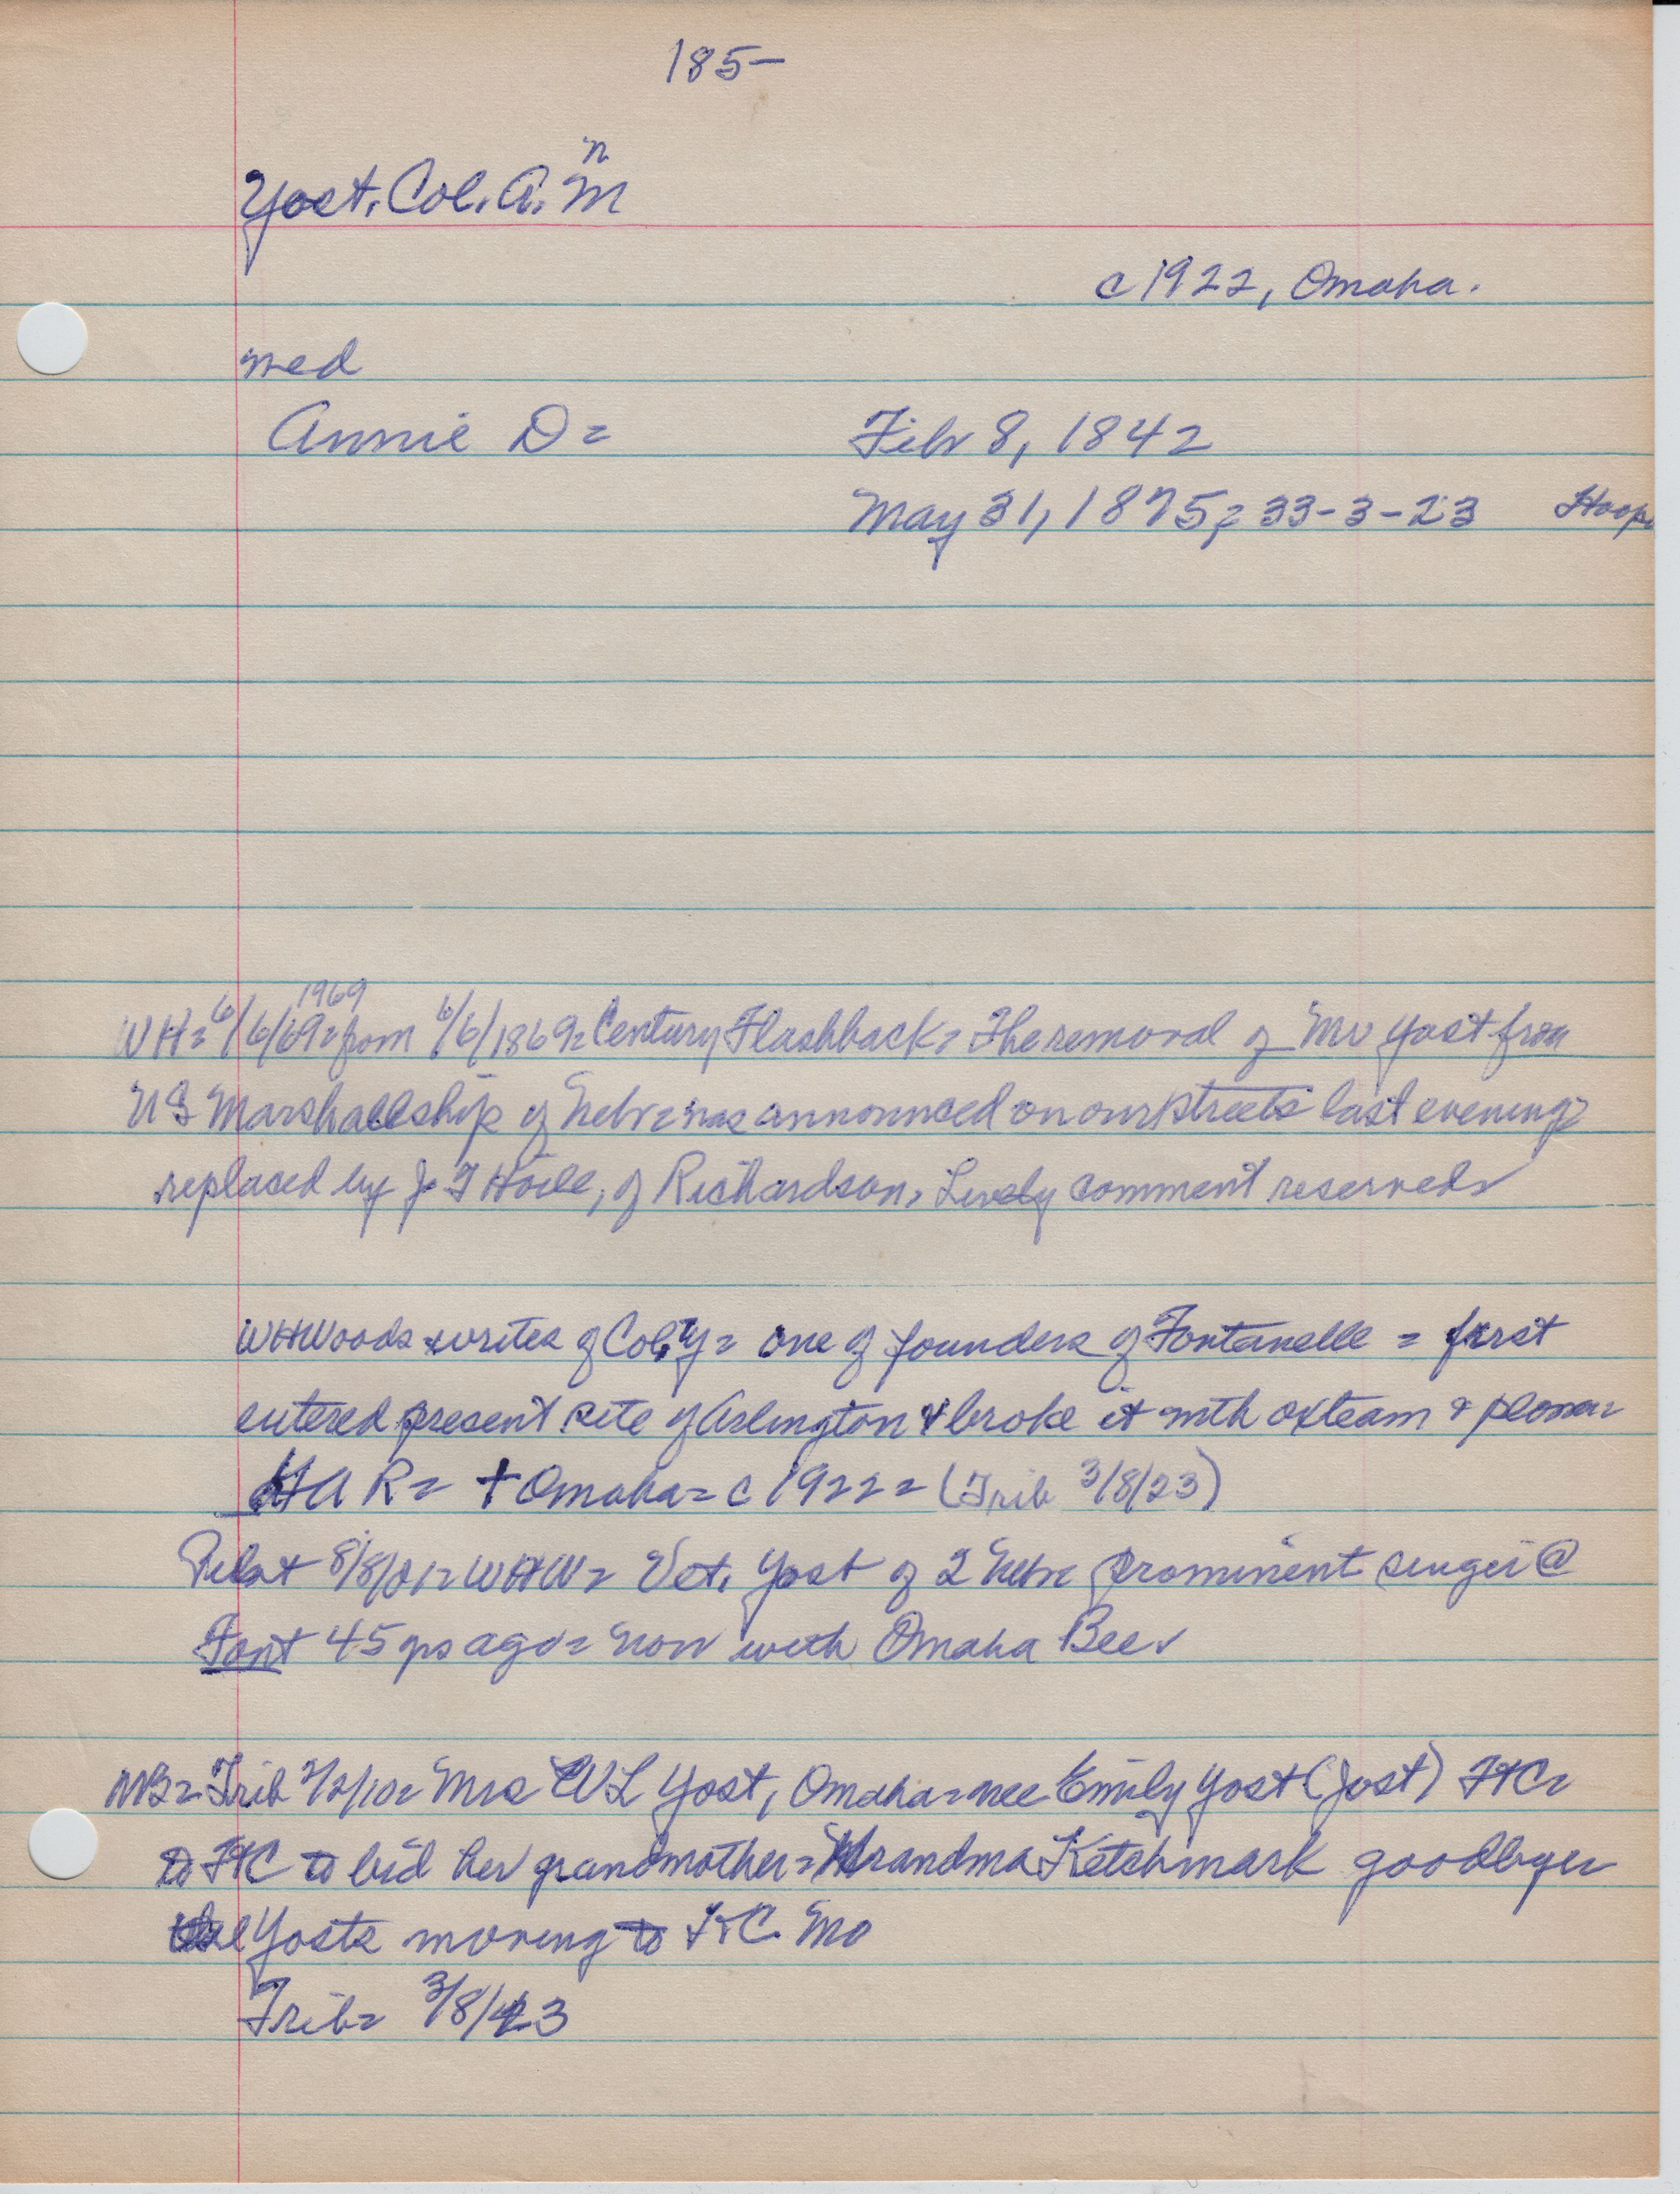 185-
n
Yost, Col. A. M
c 1922, Omaha.
med
Annie D=
Feb 8, 1842
May 31, 1875; 33-3-23 Hoop
1969
WH= 6/6/69= from 6/6/1869= Century Flashback= The removal of Mr Yost from
US Marshallship of Nebr= was announced on our streets last evening=
replaced by J T Hoile, of Richardson, Lively comment reserved
WHWoods writes of Col. Y= one of founders of Fontanelle = first
entered present site of Arlington & broke it with oxteam & plow=
HAR= + Omaha= c 1922= (Trib 3/8/23)
Pilot 8/8/01= WHW= Vet. Yost of 2 Nebr prominent singer @
Font 45 yrs ago= now with Omaha Bee
NB= Trib 2/2/10= Mrs WL Yost, Omaha= nee Emily Yost (Jost) FtC=
to FtC to bid her grandmother= Grandma Ketchmark goodbye=
Yosts moving to K C. Mo
Trib= 3/8/23